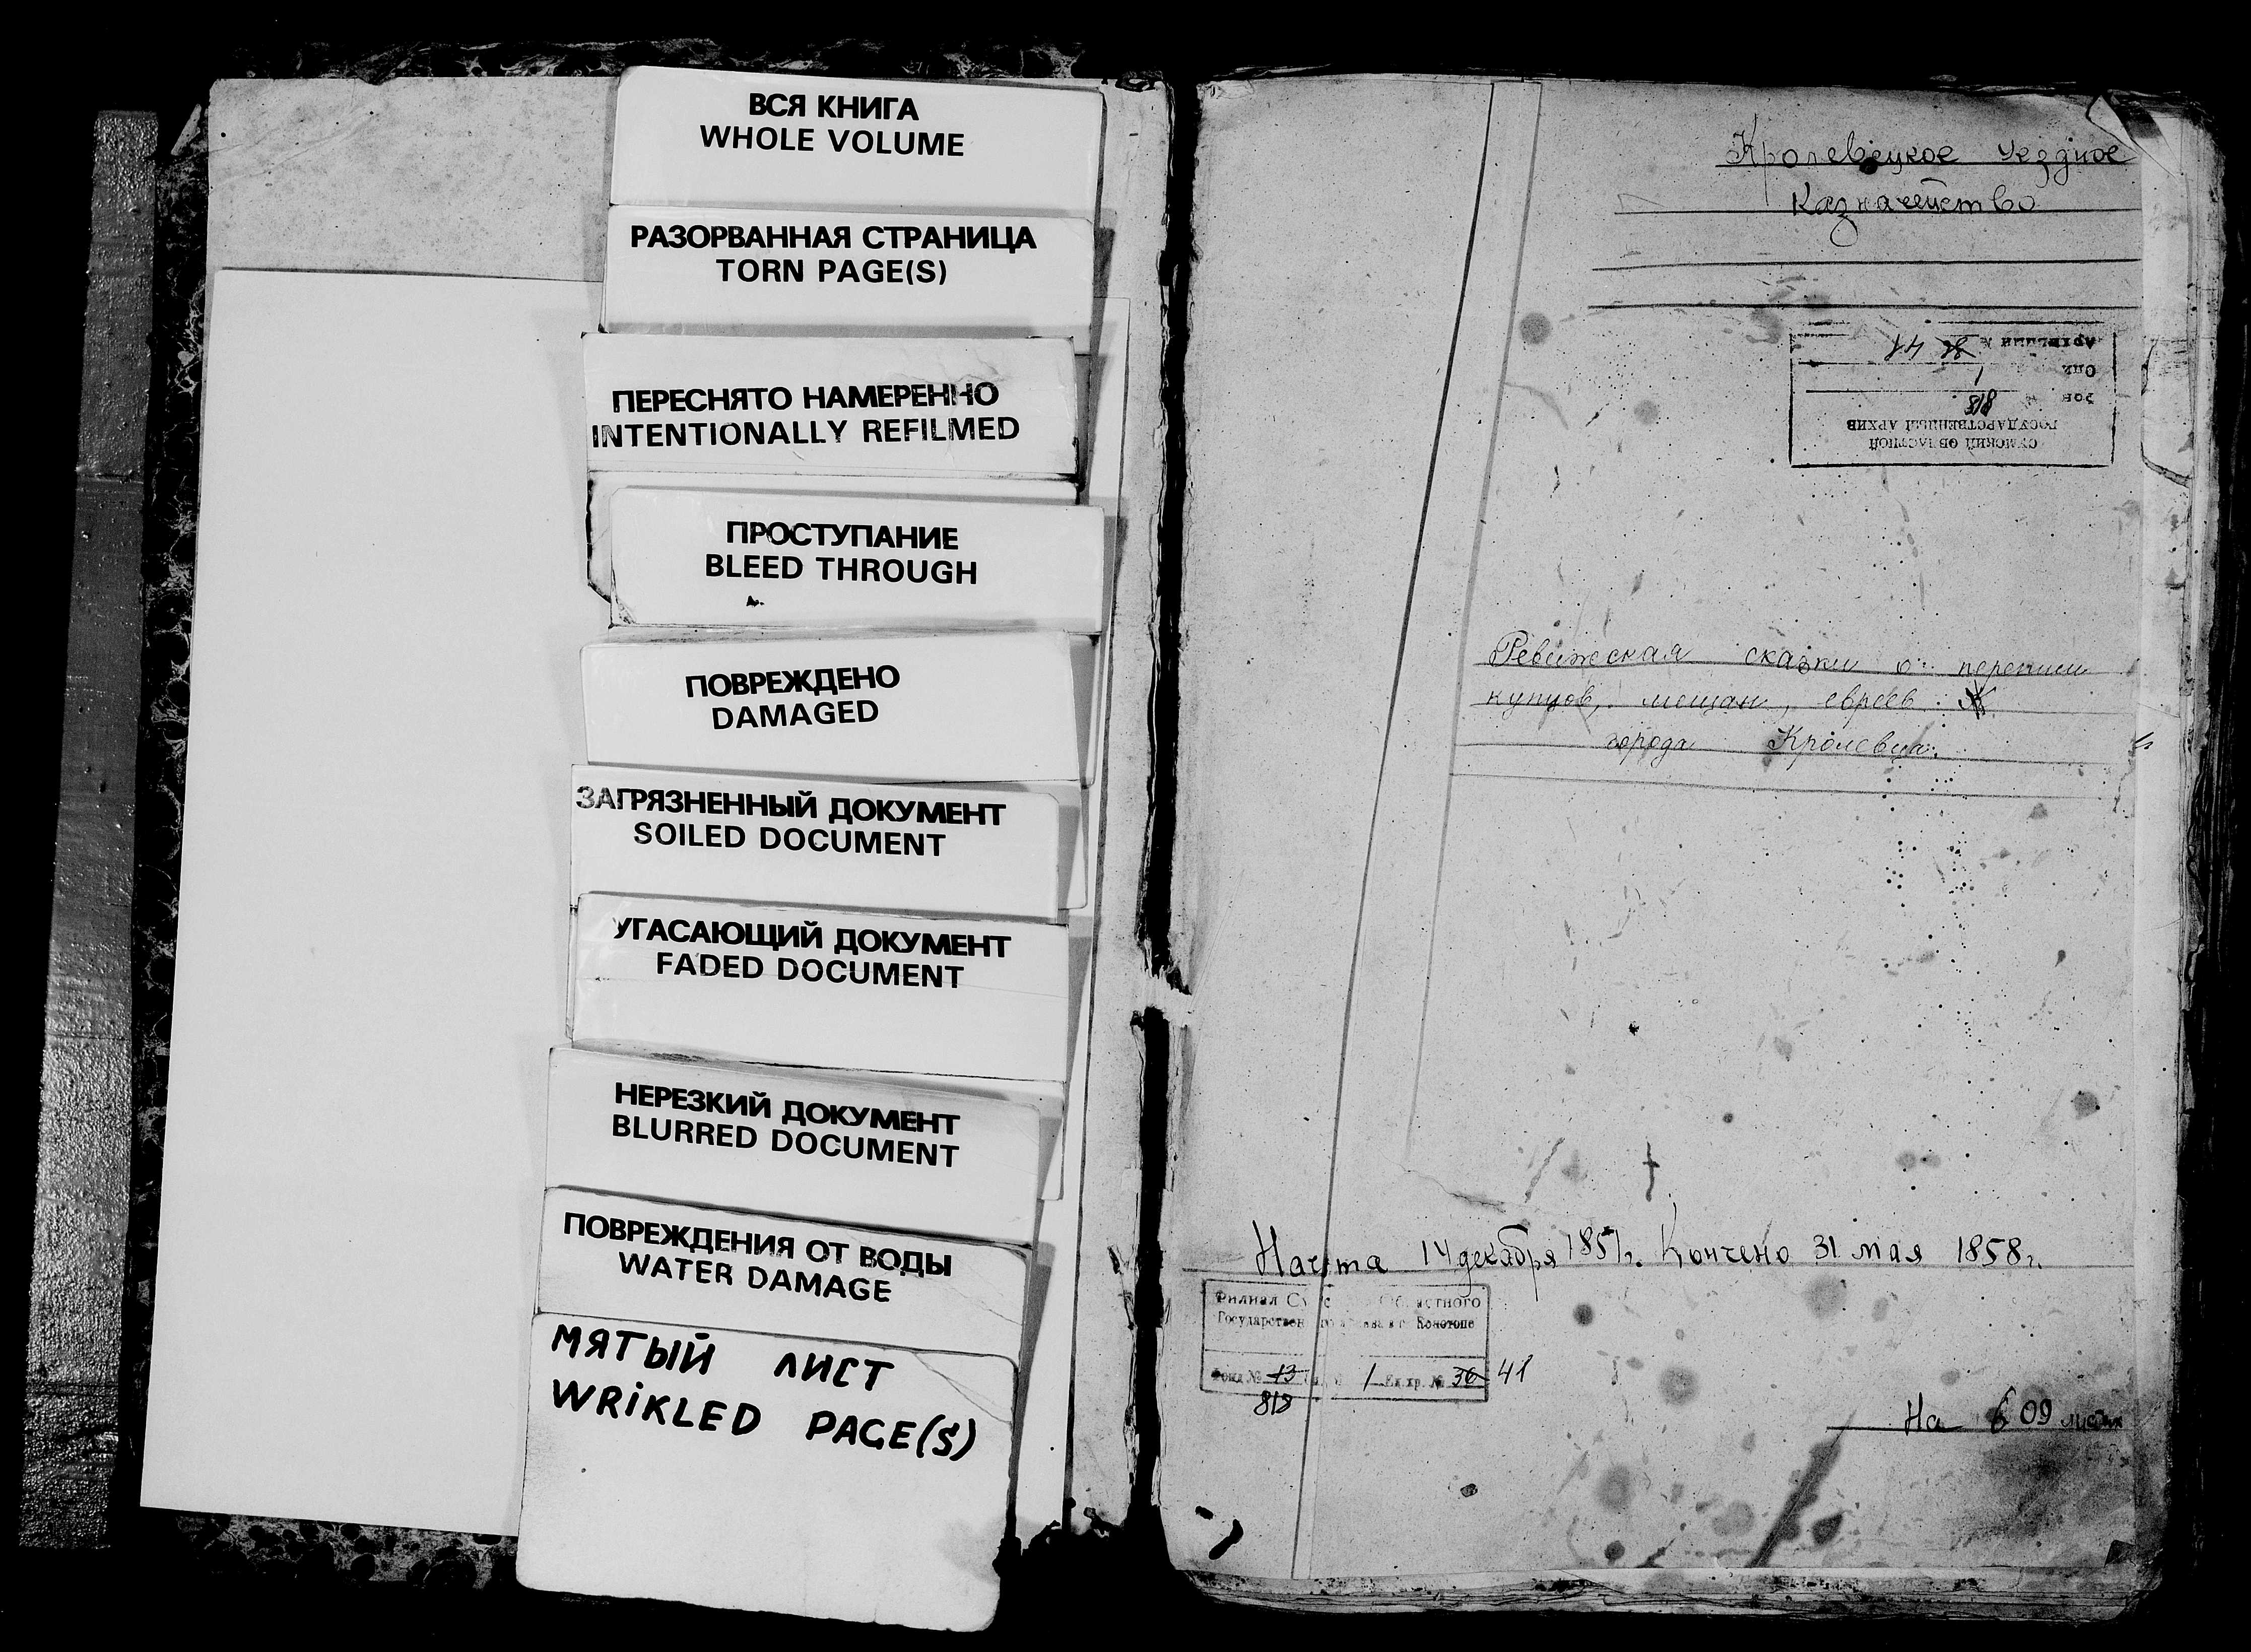 ВСЯ КНИГА
WHOLE VOLUME
РАЗОРВАННАЯ СТРАНИЦА
TORN PAGE(S)
ПЕРЕСНЯТО НАМЕРЕННО
INTENTIONALLY REFILMED
ПРОСТУПАНИЕ
BLEED THROUGH
ПОВРЕЖДЕНО
DAMAGED
ЗАГРЯЗНЕННЫЙ ДОКУМЕНТ
SOILED DOCUMENT
УГАСАЮЩИЙ ДОКУМЕНТ
FADED DOCUMENT
НЕРЕЗКИЙ ДОКУМЕНТ
BLURRED DOCUMENT
ПОВРЕЖДЕНИЯ ОТ ВОДЫ
WATER DAMAGE
МЯТЫЙ ЛИСТ
WRiKLED PAGE(S)
Кролевецкое Уездное
Казначейство
СУМСКИЙ ОБЛАСТНОЙ
ГОСУДАРСТВЕННЫЙ АРХИВ
818
Опи 1
Ревижская сказки о переписи
купцов, мещан, евреев
города Кролевца.
Начата 14 декабря 1851г. Кончено 31 мая 1858г.
Филиал Областного
Конотопе
Фонд № 13 1 Ед. хр. № 36 41
818
На 609 листах